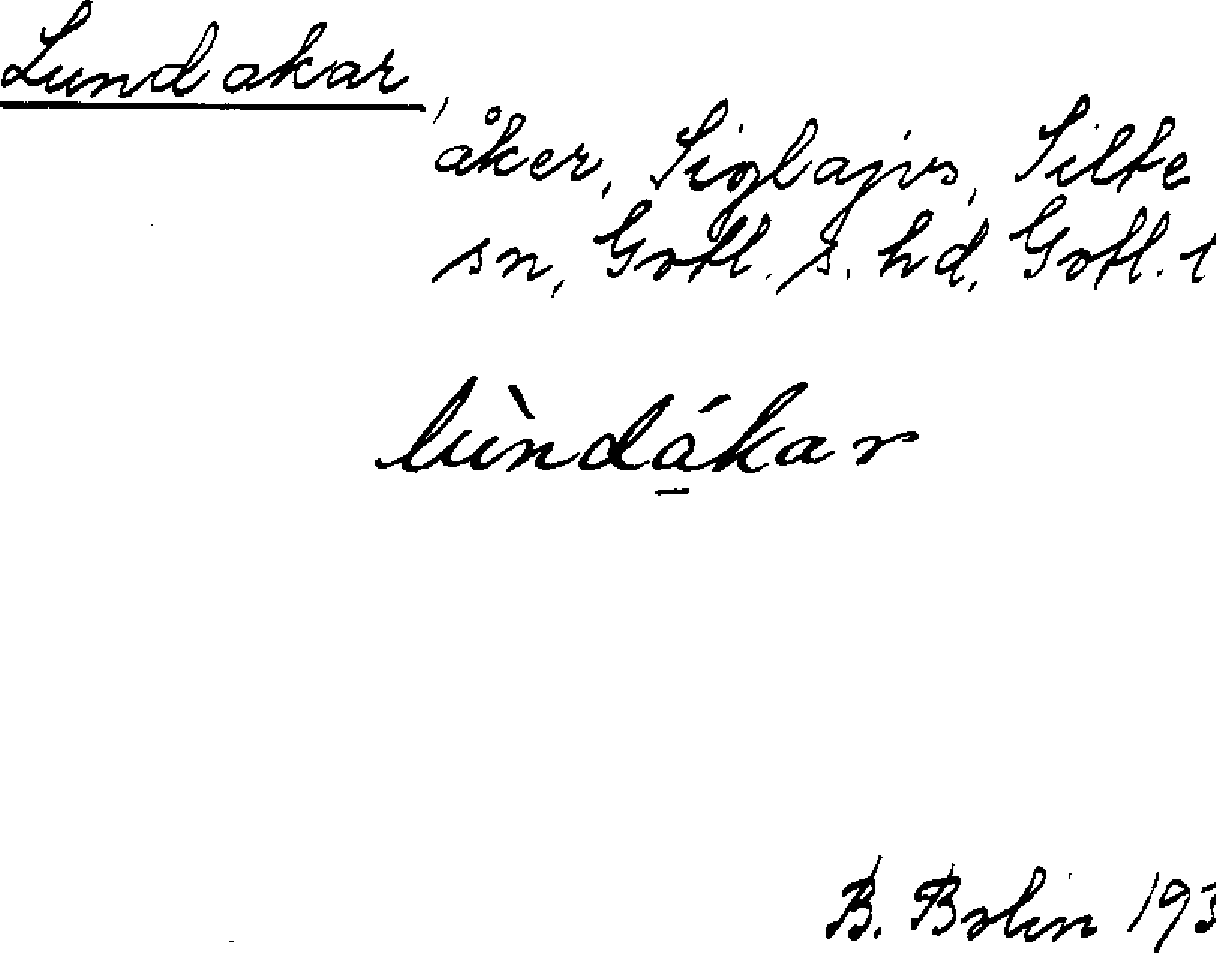 Lundakar,
åker, Siglajvs, Silte
sn, Gotl. s. hd, Gotl. l
lùndá̱kar
B. Bolin 193